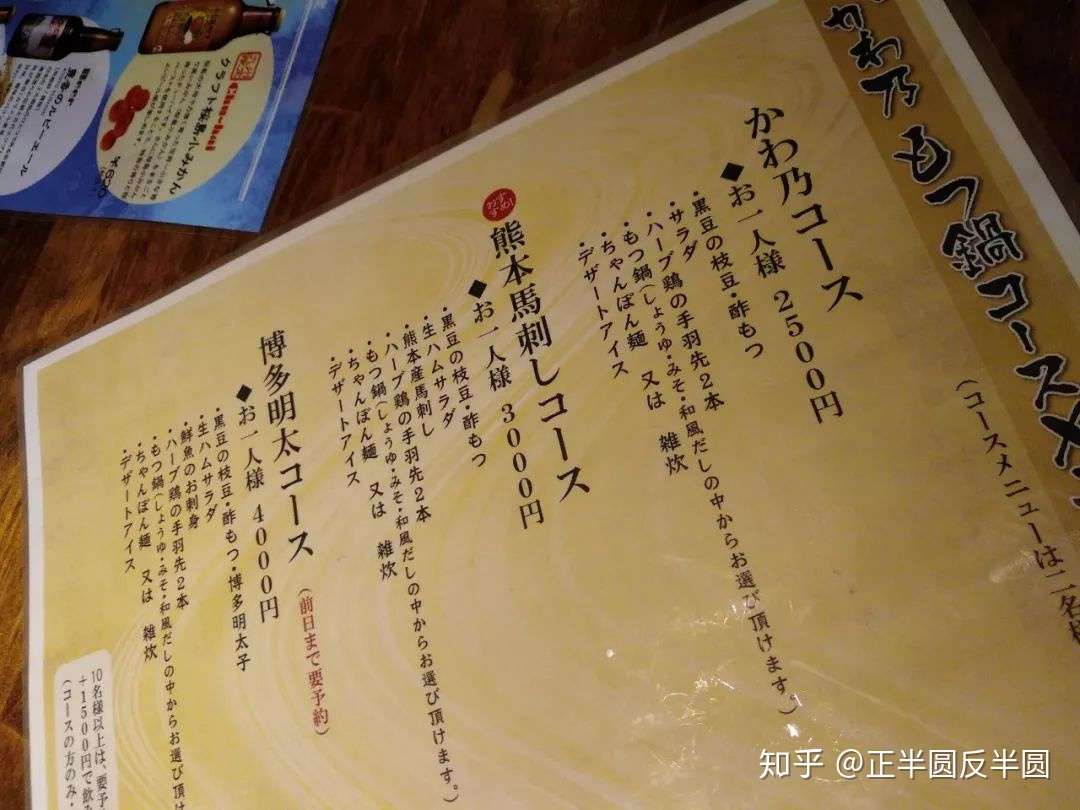 かわ乃 もつ鍋コースメ
（コースメニューは二名様
かわ乃コース
◆お一人様 2500円
・黒豆の枝豆・酢もつ
・サラダ
・ハーブ鶏の手羽先2本
・もつ鍋（しょうゆ・みそ・和風だしの中からお選び頂けます。）
・ちゃんぽん麺 又は 雑炊
・デザートアイス
おすすめ！
熊本馬刺しコース
◆お一人様 3000円
・黒豆の枝豆・酢もつ
・生ハムサラダ
・熊本産馬刺し
・ハーブ鶏の手羽先2本
・もつ鍋（しょうゆ・みそ・和風だしの中からお選び頂けます。）
・ちゃんぽん麺 又は 雑炊
・デザートアイス
博多明太コース（前日まで要予約）
◆お一人様 4000円
・黒豆の枝豆・酢もつ・博多明太子
・生ハムサラダ
・鮮魚のお刺身
・ハーブ鶏の手羽先2本
・もつ鍋（しょうゆ・みそ・和風だしの中からお選び頂け
・ちゃんぽん麺 又は 雑炊
・デザートアイス
10名様以上は、要予
+1500円で飲み
（コースの方のみ・
クラフト桜島小みかん
知乎 @正半圆反半圆